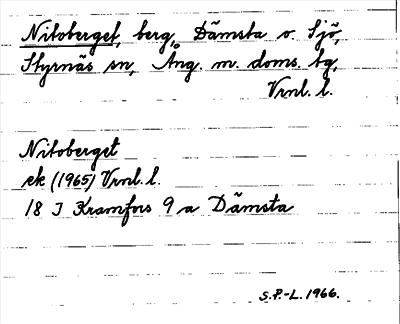 Nitoberget, berg, Dämsta o. Sjö,
Styrnäs sn, Ång. m. doms. bg,
Vrnl. l.
Nitoberget
ek (1965) Vrnl. l.
18 I Kramfors 9 a Dämsta
S.P.-L. 1966.